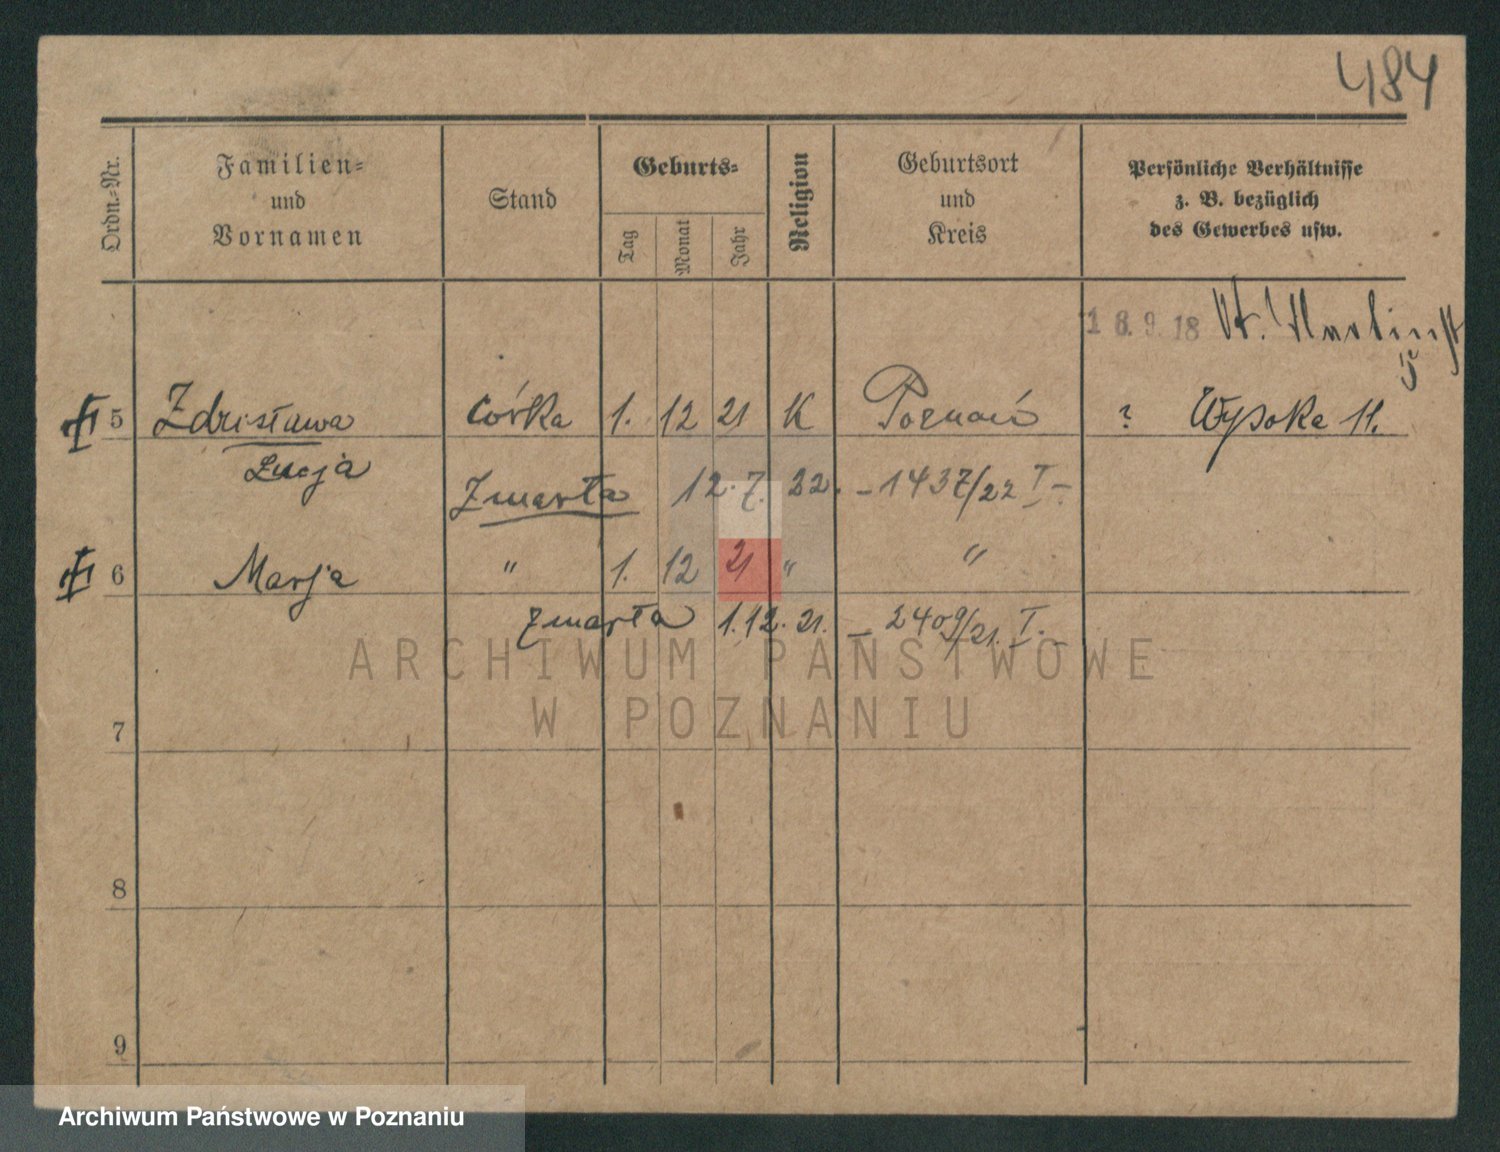 484
Ordn.-Nr.
Familien-
und
Vornamen
Stand
Geburts-
Tag
Monat
Jahr
Religion
Geburtsort
und
Kreis
Persönliche Verhältnisse
z. B. bezüglich
des Gewerbes usw.
18.9.18 St. Martinst
5 Zdzisława córka 1. 12 21 K Poznań ? Wysoka 11.
Łucja
Zmarła 12.7.22. – 1437/22 I –
6 Marja " 1. 12 21 " "
zmarła 1.12.21. – 2409/21. I. –
ARCHIWUM PAŃSTWOWE
W POZNANIU
7
8
9
Archiwum Państwowe w Poznaniu